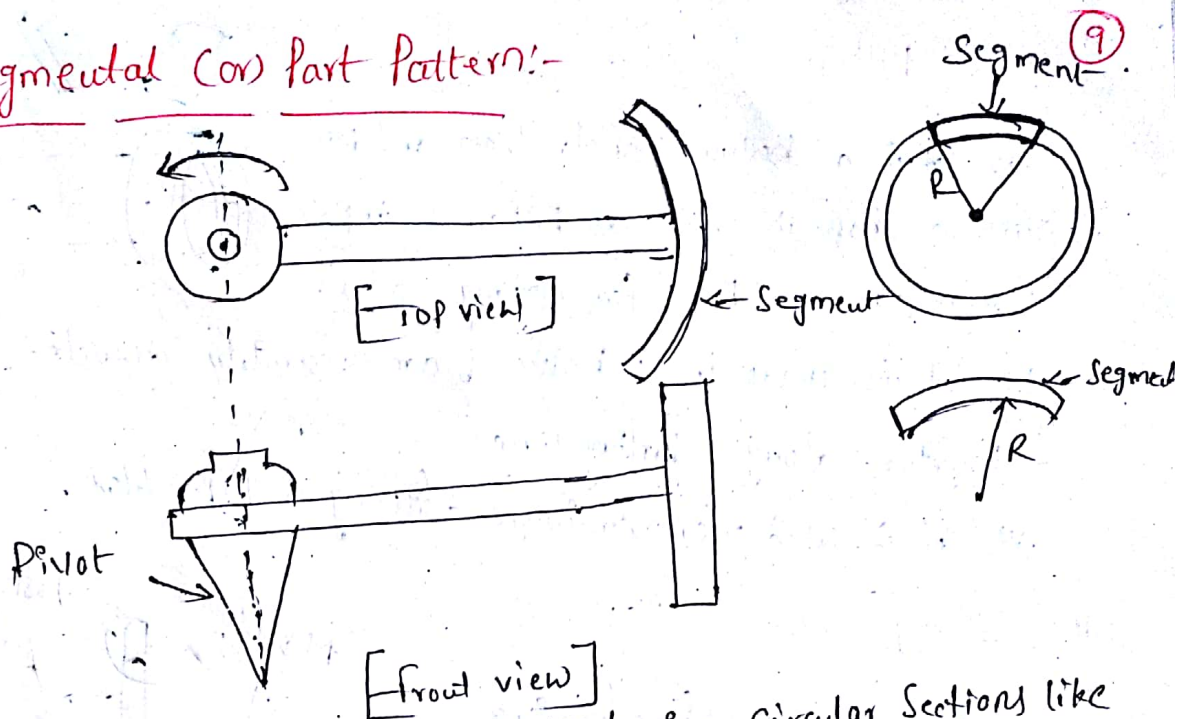 gmental (or) Part Pattern:-
9
Segment
R
[Top view]
Segment
Segmen
R
Pivot
[front view]
circular Sections like